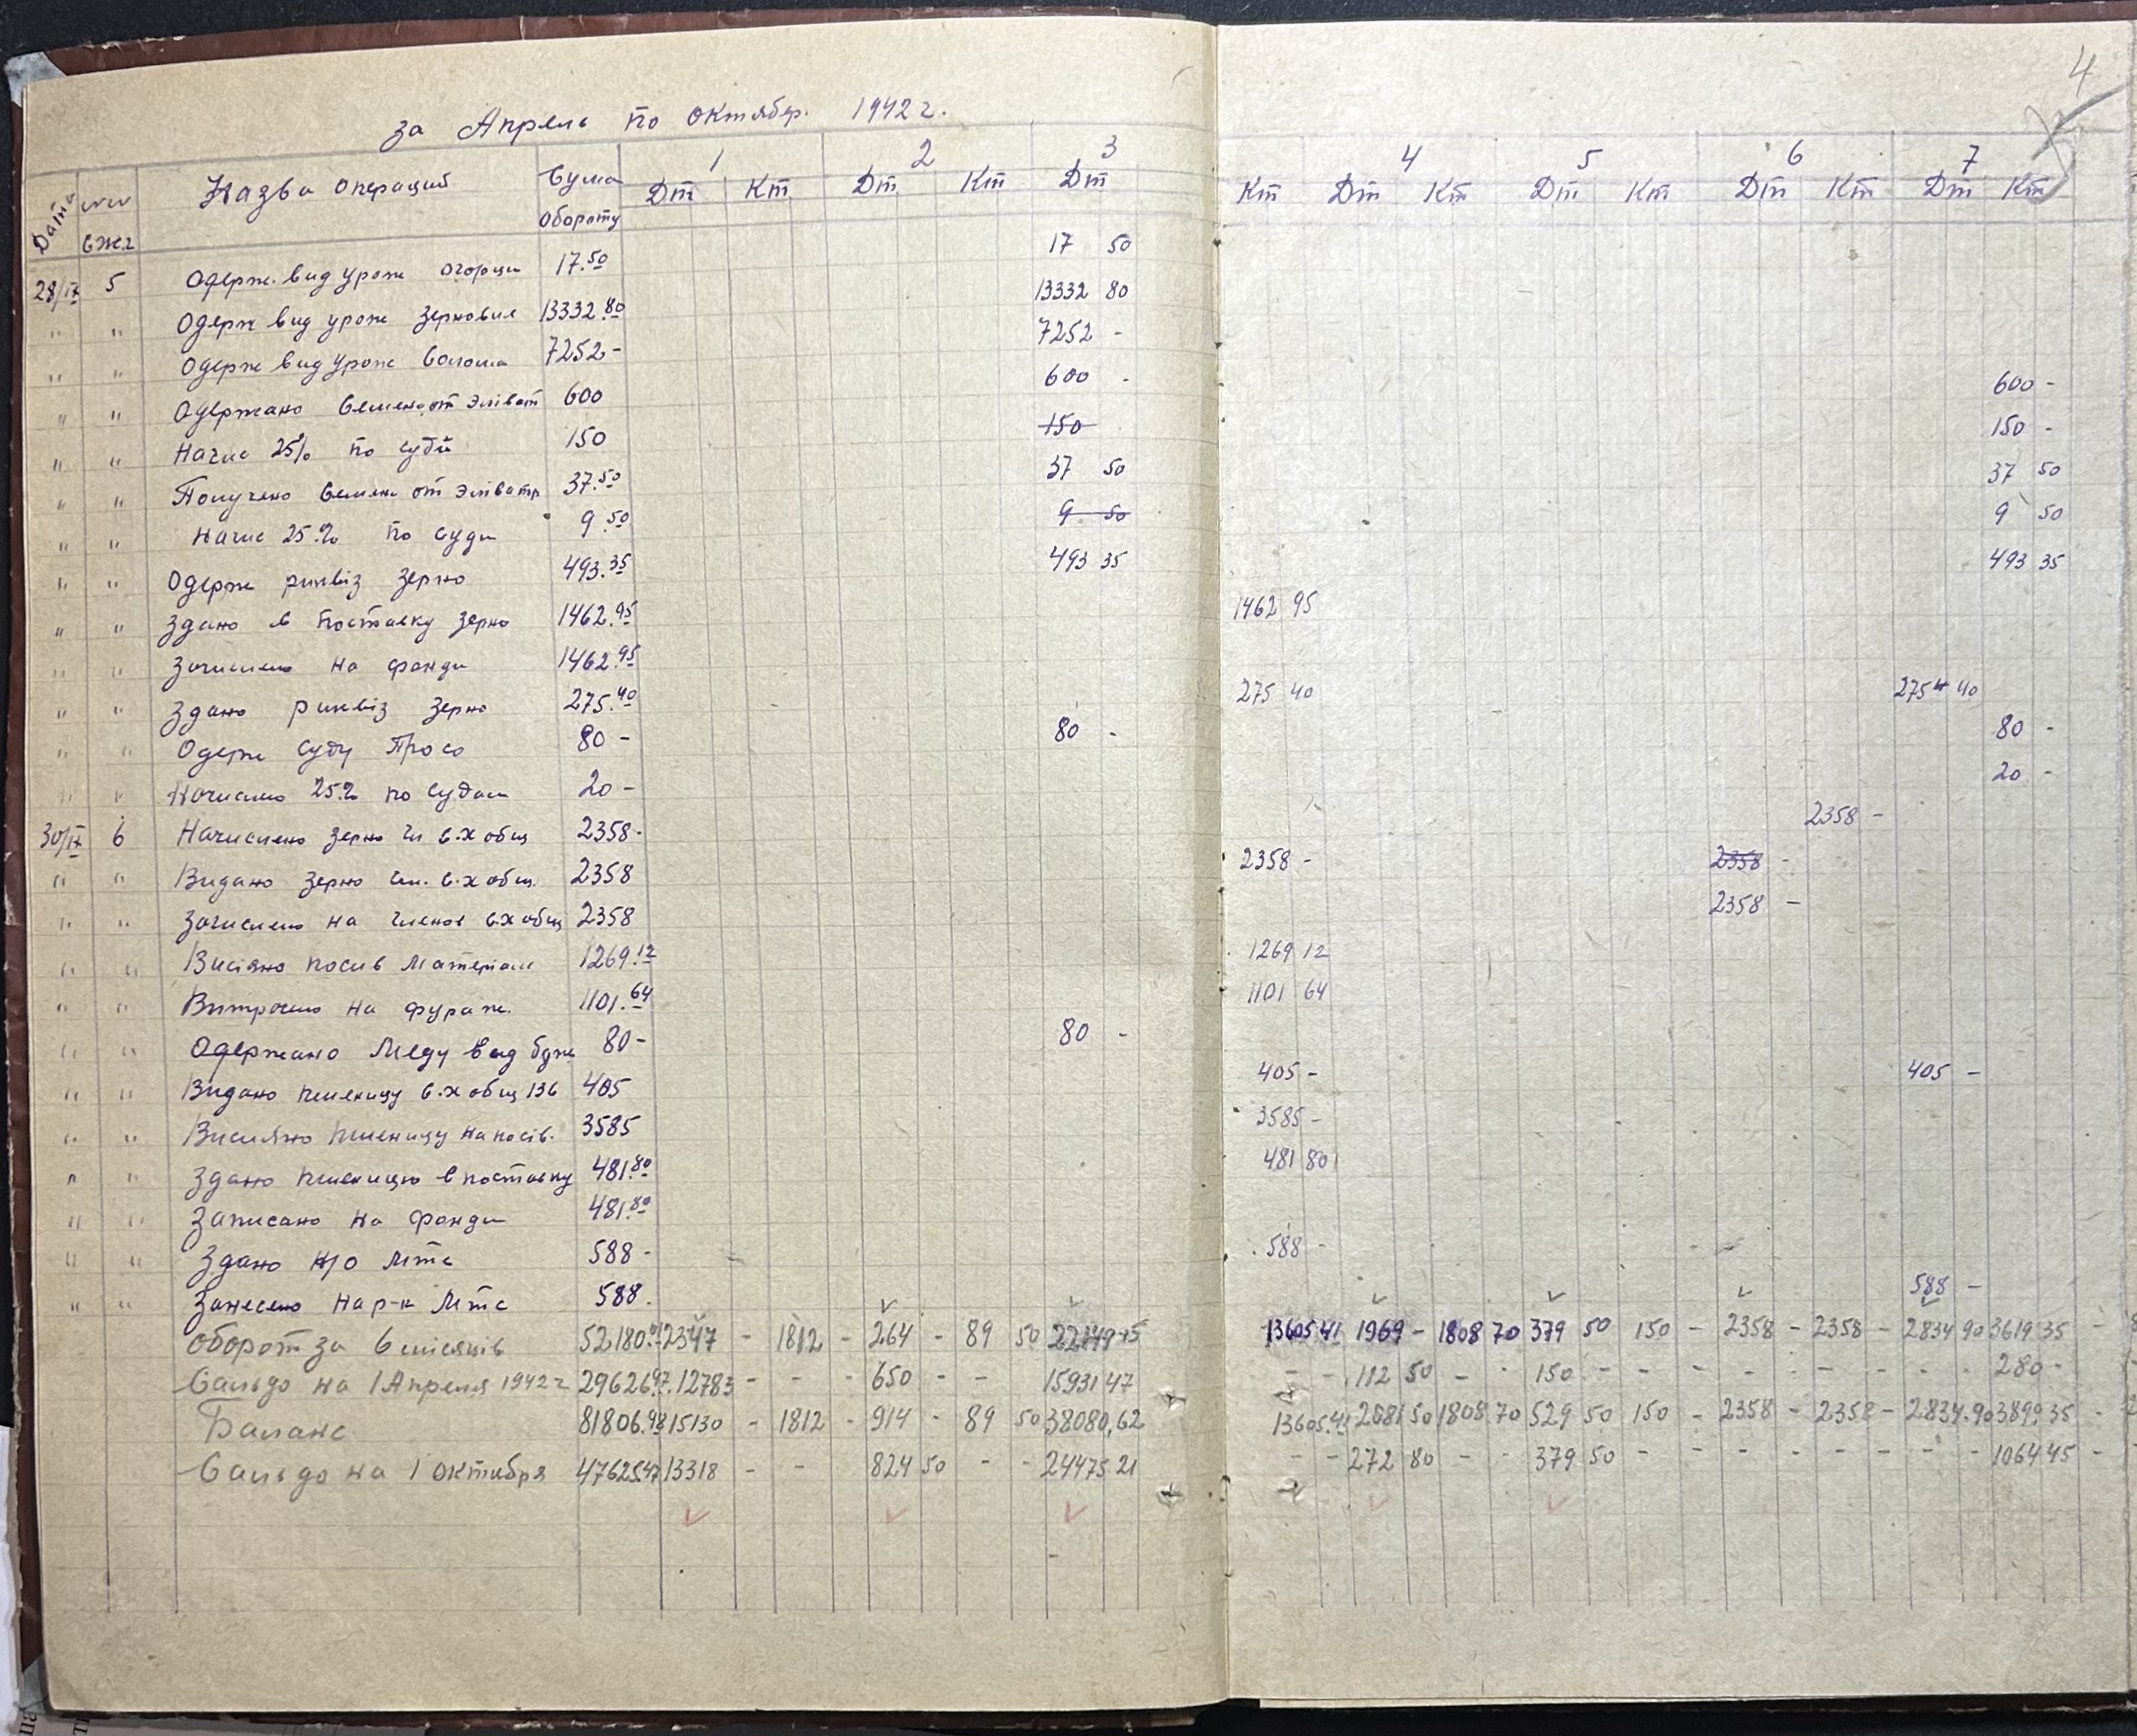 4
за Апрель по октябр. 1942 г.
Дата №№ Назва операций Сума обороту 1 2 3 4 5 6 7
Дт Кт Дт Кт Дт Кт Дт Кт Дт Кт Дт Кт Дт Кт
28/IX 5 Одерж. вид урож огорци 17.50 17 50
" " Одерж вид урож зернових 13332.80 13332 80
" " Одерж вид урож Солома 7252- 7252 -
" " Одержано Семена от Эливат 600 600 - 600 -
" " Начис 25% по 150 150 150 -
" " Получено Семен от Эливатр 37.50 37 50 37 50
" " Начис 25% по Суди 9.50 9 50 9 50
" " Одерж риквіз Зерно 493.35 493 35 493 35
" " Здано в поставку зерно 1462.95 1462 95
" " Зачислено на фонди 1462.95
" " Здано риквіз Зерно 275.40 275 40 275 40
" " Одерж Суду Просо 80 - 80 - 80 -
" " Начислено 25% по Судам 20 - 20 -
30/IX 6 Начислено зерно чл с.х общ 2358- 2358 -
" " Видано Зерно чл. с.х общ. 2358 2358 - 2358 -
" " Зачислено на членов с.х общ 2358 2358 -
" " Висіяно посив Матеріал 1269.12 1269 12
" " Витрочено на фураж. 1101.64 1101 64
" " Одержано Меду вид бдж 80- 80 -
" " Видано пшеницу с.х общ 136 405 405 - 405 -
" " Висияно пшеницу на посів. 3585 3585 -
" " Здано пшеницю в поставку 481.80 481 80
" " Записано на фонди 481.80
" " Здано н/о Мтс 588- 588 -
" " Занесено на р-к Мтс 588. 588 -
Оборот за 6 місяців 52180. 12347 - 1812 - 264 - 89 50 22149 15 13605 41 1969 - 1808 70 379 50 150 - 2358 - 2358 - 2834 90 3619 35 -
Сальдо на 1 Апреля 1942 г 29626.97. 12783 - - - 650 - - 15931 47 - - 112 50 - - 150 - - - - - - - - - 280 -
Баланс 81806.98 15130 - 1812 - 914 - 89 50 38080,62 13605.41 2081 50 1808 70 529 50 150 - 2358 - 2358 - 2834.90 3899 35 -
Сальдо на 1 октября 47625.47 13318 - - - 824 50 - - 24475.21 - - 272 80 - - 379 50 - - - - - - - - 1064 45 -